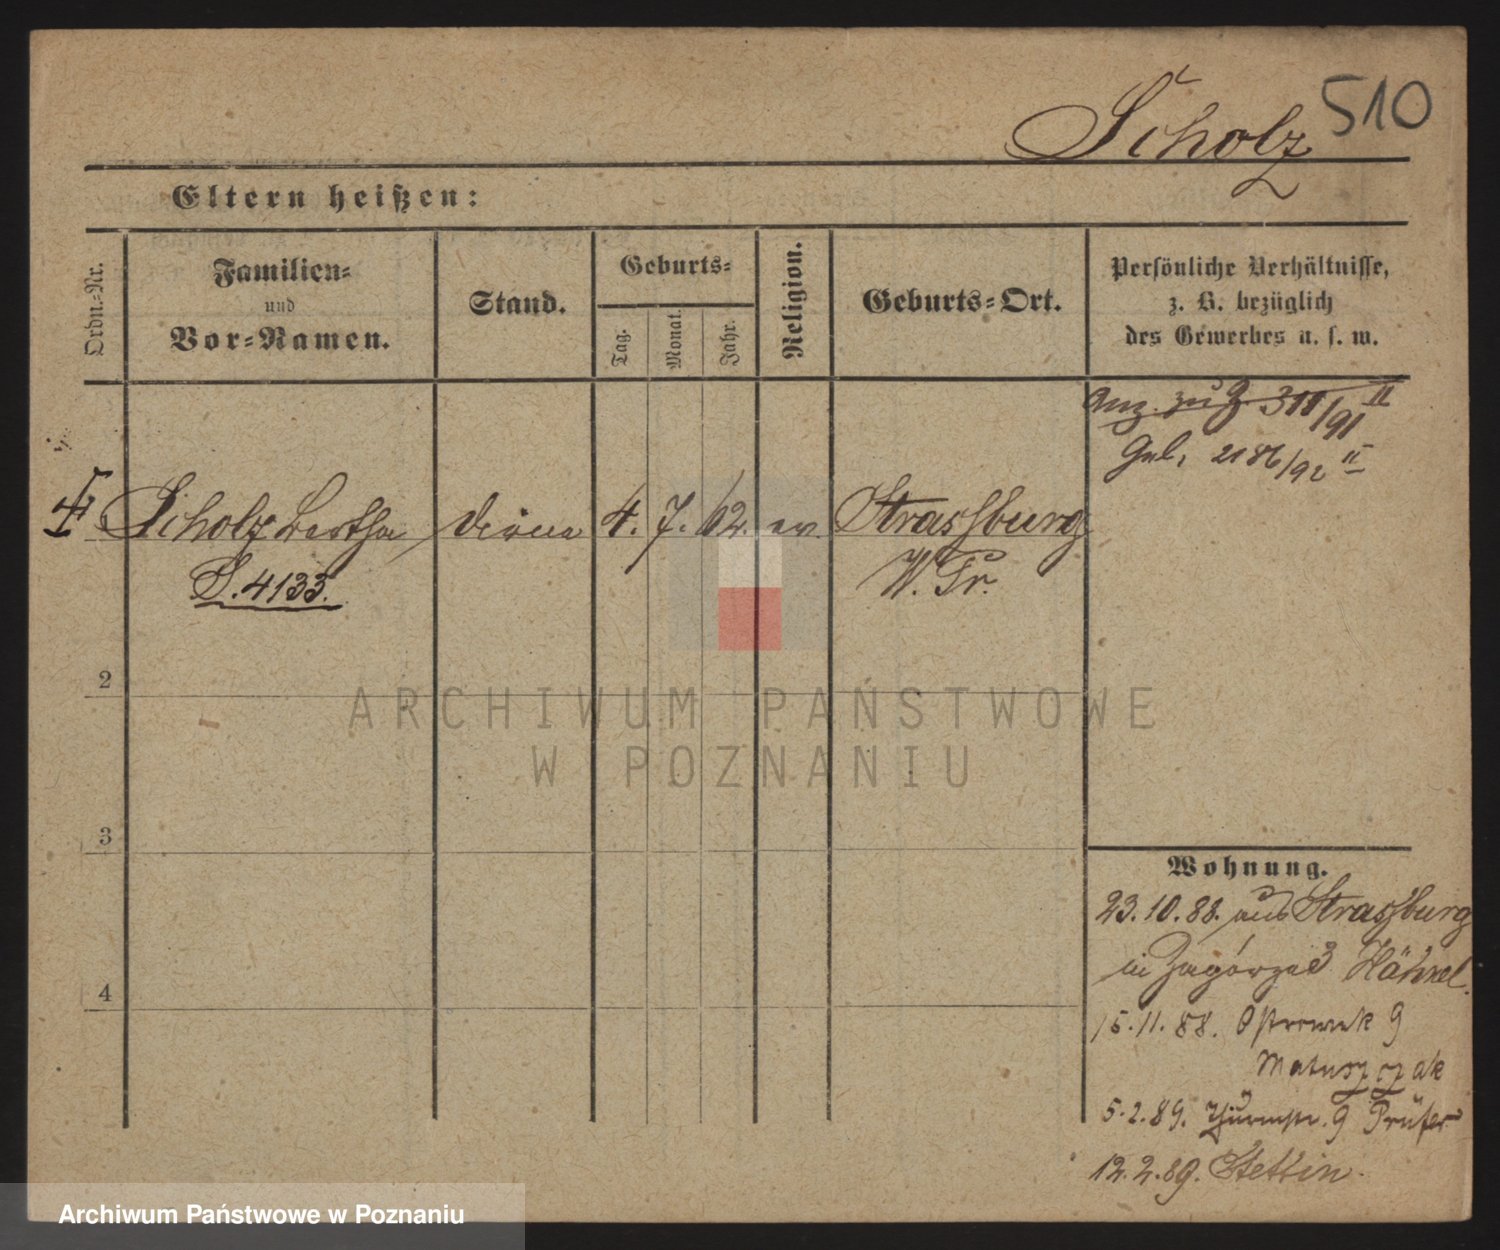 510
Scholz
Eltern heißen:
Ordn.-Nr.
Familien-
und
Vor-Namen.
Stand.
Geburts-
Tag.
Monat.
Jahr.
Religion.
Geburts-Ort.
Persönliche Verhältnisse,
z. B. bezüglich
des Gewerbes u. s. w.
Anz. zu J. 311/91 II
2186/92 II
Scholz Bertha Dirne 4. 7. 62. ev. Strassburg
S. 4133. W. Pr.
2
3
4
Wohnung.
23.10.88. aus Strassburg
in Zagórze 3 Hähnel.
15.11.88. Ostrowek 9
Matuszczak
5.2.89. Thurmstr. 9 Prüfer
12.2.89. Stettin.
ARCHIWUM PAŃSTWOWE
W POZNANIU
Archiwum Państwowe w Poznaniu